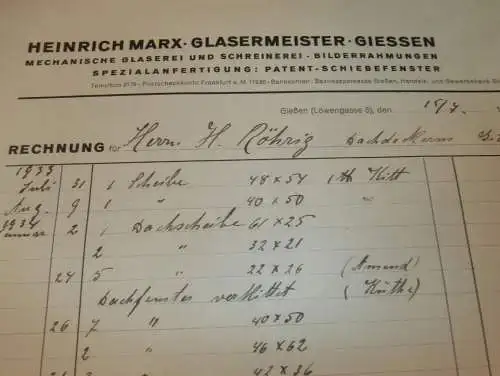 HEINRICH MARX · GLASERMEISTER · GIESSEN
MECHANISCHE GLASEREI UND SCHREINEREI · BILDERRAHMUNGEN
SPEZIALANFERTIGUNG: PATENT-SCHIEBEFENSTER
Fernruf · Postscheckkonto Frankfurt a. M. · Bankkonten: Bezirkssparkasse Gießen, Handels- und Gewerbebank
Gießen (Löwengasse 5), den
RECHNUNG für Herrn H. Röhrig Dachdeckerm.
1933
Juli 31 1 Scheibe 48 x 54 Kitt
Aug. 9 1 " 40 x 50 "
1934
2 1 Dachscheibe 61 x 25
2 " 32 x 21
24 5 " 22 x 26 (Amend)
Dachfenster verkittet (Küthe)
26 7 " 40 x 50
2 " 46 x 62
42 x 36